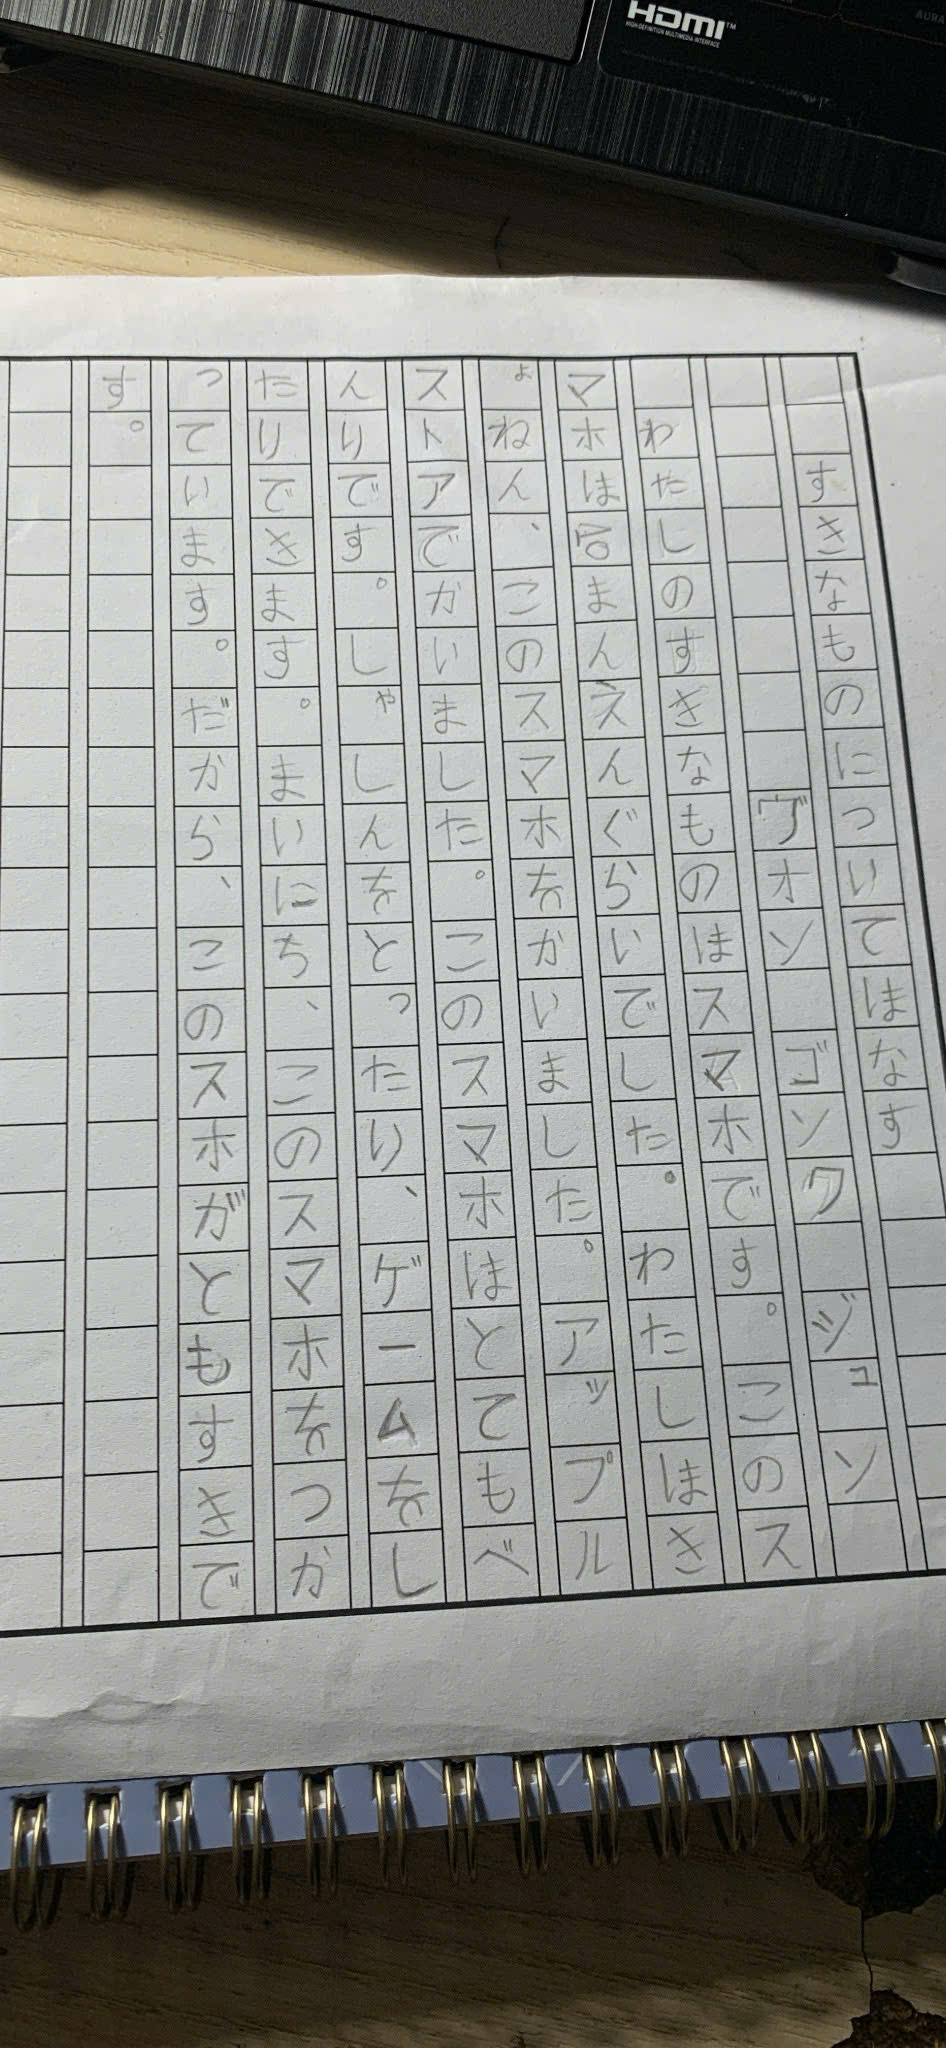 HDMI™
HIGH-DEFINITION MULTIMEDIA INTERFACE
すきなものについてはなす
ヴオン ゴソク ジュン
わたしのすきなものはスマホです。このス
マホは百まんえんぐらいでした。わたしはき
ょねん、このスマホをかいました。アップル
ストアでかいました。このスマホはとてもべ
んりです。しゃしんをとったり、ゲームをし
たりできます。まいにち、このスマホをつか
っています。だから、このスホがともすきで
す。